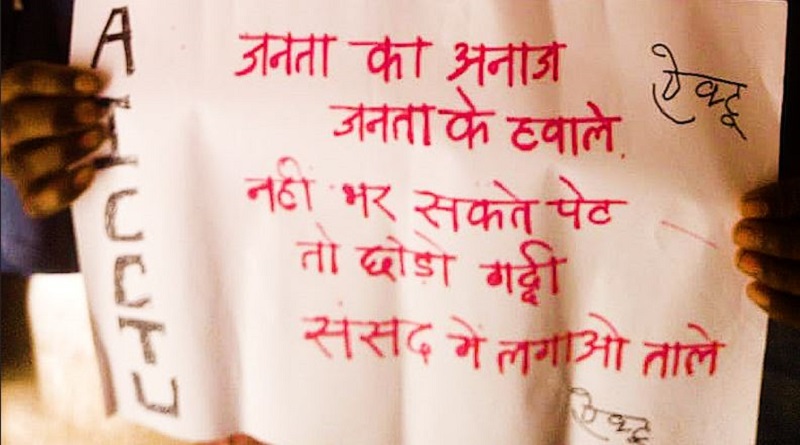 AICCTU
जनता का अनाज
ऐक्टू
जनता के हवाले.
नहीं भर सकते पेट
तो छोड़ो गद्दी
संसद में लगाओ ताले
ऐक्टू